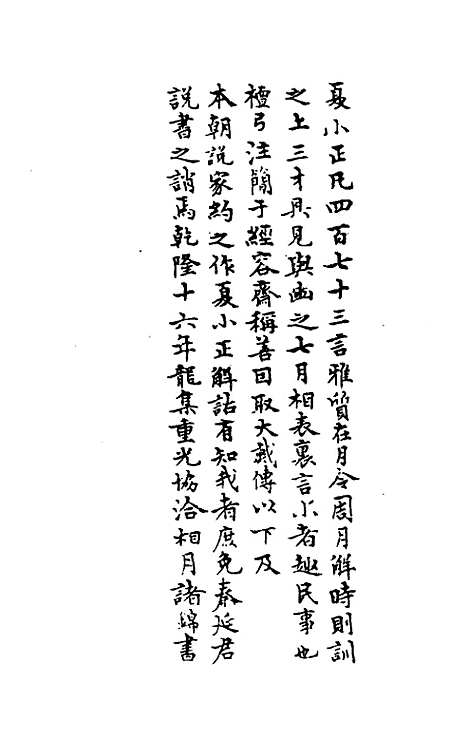 夏小正凡四百七十三言雅質在月令周月解時則訓
之上三才具見與豳之七月相表裏言小者趣民事也
檀弓注簡于經容齋稱善因取大戴傳以下及
本朝說家約之作夏小正解詁有知我者庶免秦延君
說書之誚焉乾隆十六年龍集重光協洽相月諸錦書